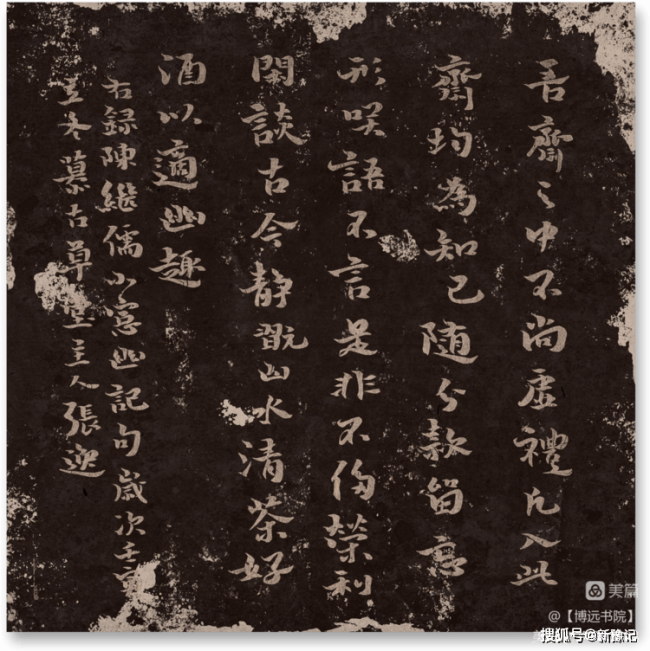 吾齋之中不尚虛禮凡入此
齋均為知己隨分款留忘
形咲語不言是非不侈榮利
閑談古今靜翫山水清茶好
酒以適幽趣
右録陳繼儒小窓幽記句歲次壬寅
立冬慕古草堂主人張
美篇
@【博远书院】
搜狐号@新豫记